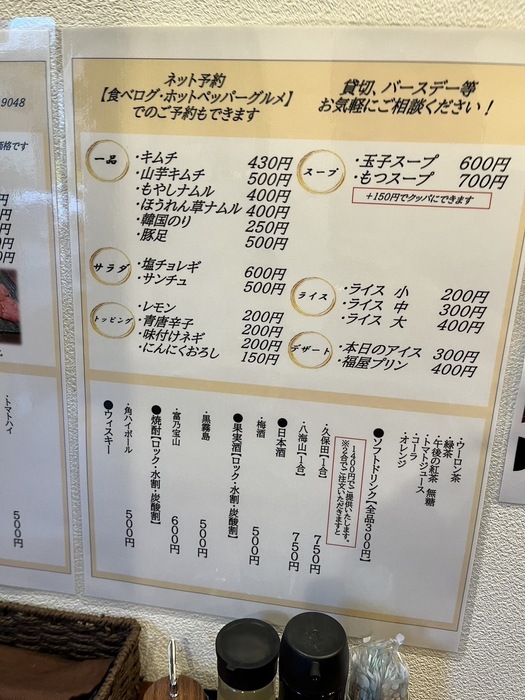 9048
価格です
円
円
円
円
円
・トマトハイ
500円
ネット予約
【食べログ・ホットペッパーグルメ】
でのご予約もできます
貸切、バースデー等
お気軽にご相談ください！
一品
・キムチ 430円
・山芋キムチ 500円
・もやしナムル 400円
・ほうれん草ナムル 400円
・韓国のり 250円
・豚足 500円
サラダ
・塩チョレギ 600円
・サンチュ 500円
トッピング
・レモン 200円
・青唐辛子 200円
・味付けネギ 200円
・にんにくおろし 150円
スープ
・玉子スープ 600円
・もつスープ 700円
+150円でクッパにできます
ライス
・ライス 小 200円
・ライス 中 300円
・ライス 大 400円
デザート
・本日のアイス 300円
・福屋プリン 400円
●ソフトドリンク【全品300円】
・ウーロン茶
・緑茶
・午後の紅茶 無糖
・トマトジュース
・コーラ
・オレンジ
●日本酒
・八海山【1合】 750円
・久保田【1合】 750円
※2合でご注文いただきますと、
1400円でご提供いたします。
●果実酒【ロック・水割・炭酸割】
・梅酒 500円
●焼酎【ロック・水割・炭酸割】
・富乃宝山 600円
・黒霧島 500円
●ウィスキー
・角ハイボール 500円